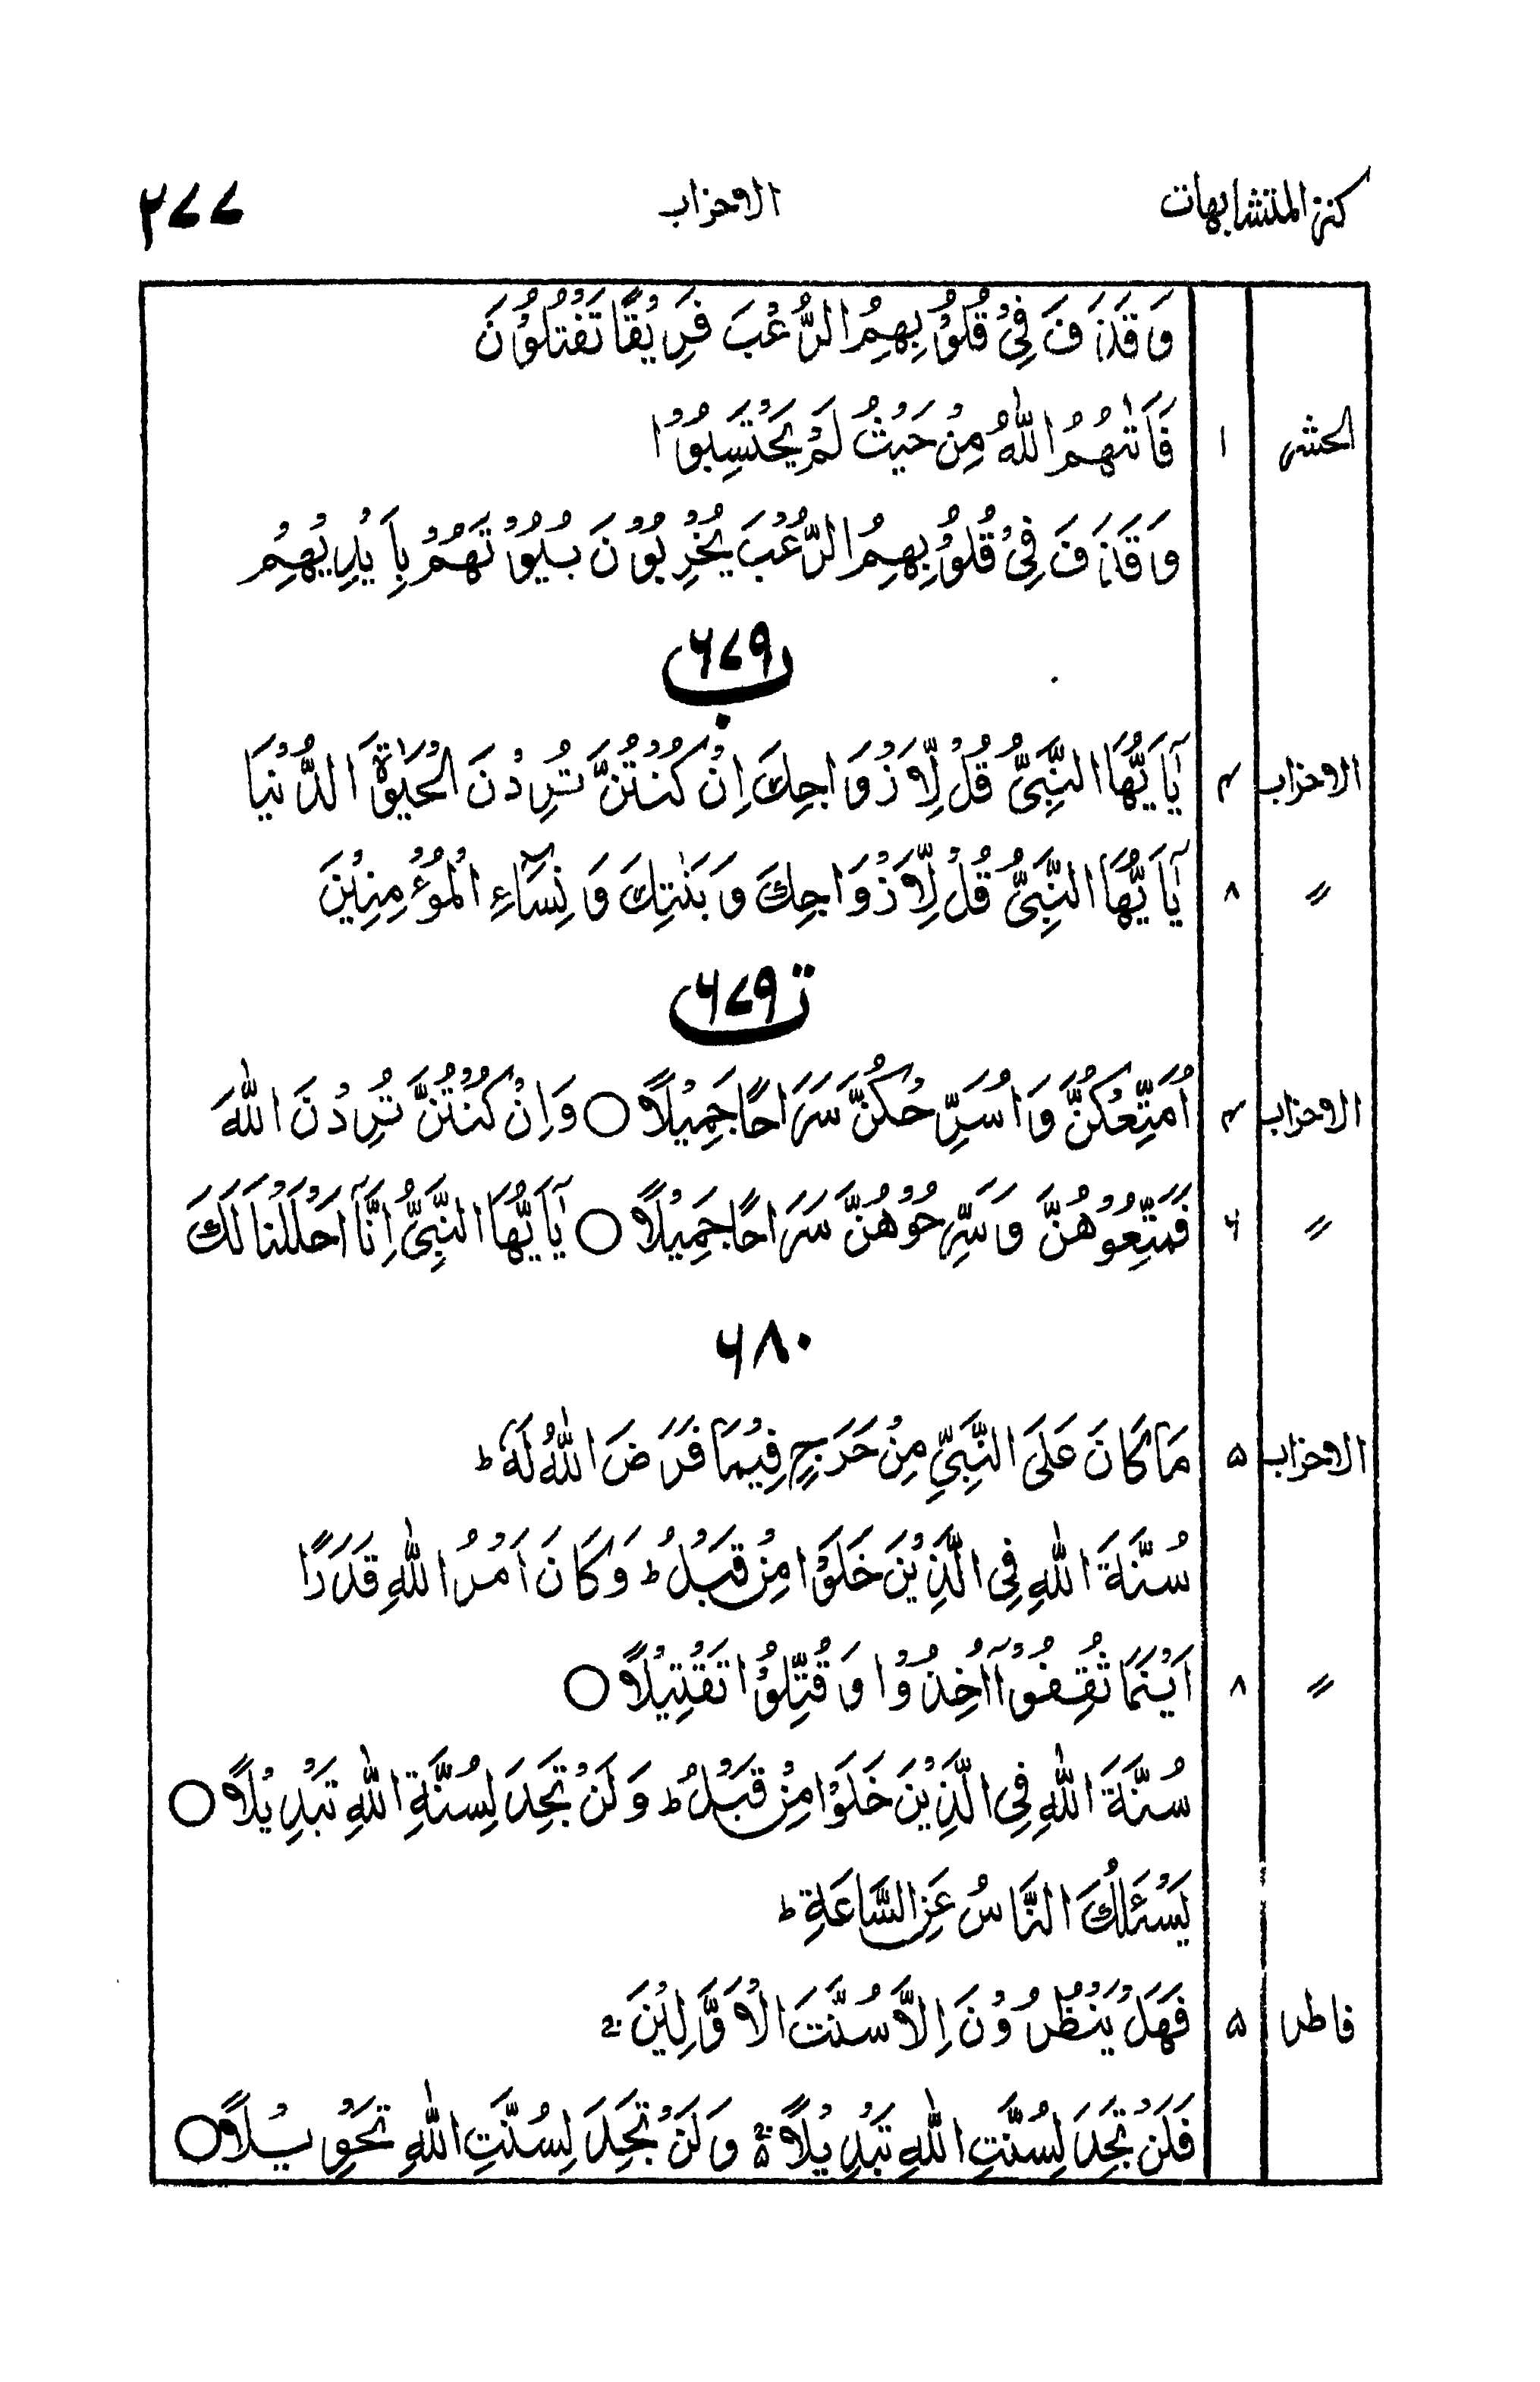 كنز المتشابهات الاحزاب ٢٧٧
وَقَذَفَ فِىْ قُلُوْبِهِمُ الرُّعْبَ فَرِيْقًا تَقْتُلُوْنَ
الحشر ١ فَاَتٰهُمُ اللّٰهُ مِنْ حَيْثُ لَمْ يَحْتَسِبُوْا
وَقَذَفَ فِىْ قُلُوْبِهِمُ الرُّعْبَ يُخْرِبُوْنَ بُيُوْتَهُمْ بِاَيْدِيْهِمْ
٦٧٩ ب
الاحزاب ۴ يٰۤاَيُّهَا النَّبِىُّ قُلْ لِّاَزْوَاجِكَ اِنْ كُنْتُنَّ تُرِدْنَ الْحَيٰوةَ الدُّنْيَا
〃 ٨ يٰۤاَيُّهَا النَّبِىُّ قُلْ لِّاَزْوَاجِكَ وَبَنٰتِكَ وَنِسَآءِ الْمُؤْمِنِيْنَ
٦٧٩ ت
الاحزاب ۴ اُمَتِّعْكُنَّ وَاُسَرِّحْكُنَّ سَرَاحًا جَمِيْلًا ○ وَاِنْ كُنْتُنَّ تُرِدْنَ اللّٰهَ
〃 ٦ فَمَتِّعُوْهُنَّ وَسَرِّحُوْهُنَّ سَرَاحًا جَمِيْلًا ○ يٰۤاَيُّهَا النَّبِىُّ اِنَّاۤ اَحْلَلْنَا لَكَ
٦٨٠
الاحزاب ۵ مَا كَانَ عَلَى النَّبِىِّ مِنْ حَرَجٍ فِيْمَا فَرَضَ اللّٰهُ لَهٗ ؕ
سُنَّةَ اللّٰهِ فِى الَّذِيْنَ خَلَوْا مِنْ قَبْلُ ؕ وَكَانَ اَمْرُ اللّٰهِ قَدَرًا
〃 ٨ اَيْنَمَا ثُقِفُوْۤا اُخِذُوْا وَقُتِّلُوْا تَقْتِيْلًا ○
سُنَّةَ اللّٰهِ فِى الَّذِيْنَ خَلَوْا مِنْ قَبْلُ ؕ وَلَنْ تَجِدَ لِسُنَّةِ اللّٰهِ تَبْدِيْلًا ○
يَسْئَلُكَ النَّاسُ عَنِ السَّاعَةِ ؕ
فاطر ۵ فَهَلْ يَنْظُرُوْنَ اِلَّا سُنَّتَ الْاَوَّلِيْنَ ۚ
فَلَنْ تَجِدَ لِسُنَّتِ اللّٰهِ تَبْدِيْلًا ۚ۵ وَلَنْ تَجِدَ لِسُنَّتِ اللّٰهِ تَحْوِيْلًا ○